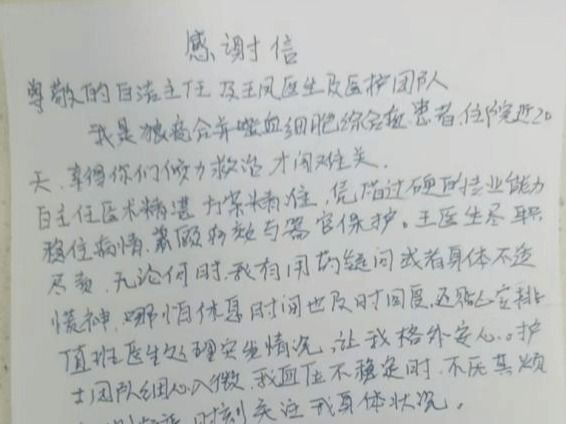 感谢信
尊敬的白洁主任及王凤医生及医护团队
我是狼疮合并噬血细胞综合征患者住院近20
天,幸得你们倾力救治才闯难关。
白主任医术精湛方案精准,凭借过硬的专业能力
稳住病情,兼顾疗效与器官保护。王医生尽职
尽责,无论何时,我有用药疑问或者身体不适
慌神,哪怕休息时间也及时回复,还贴心安排
值班医生处理突发情况,让我格外安心。护
士团队细心入微,我血压不稳定时,不厌其烦
时刻关注我身体状况。